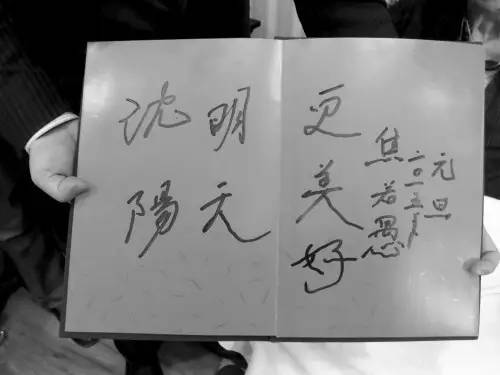 沈陽
明天
更美好
焦若愚
二〇一五年
元旦